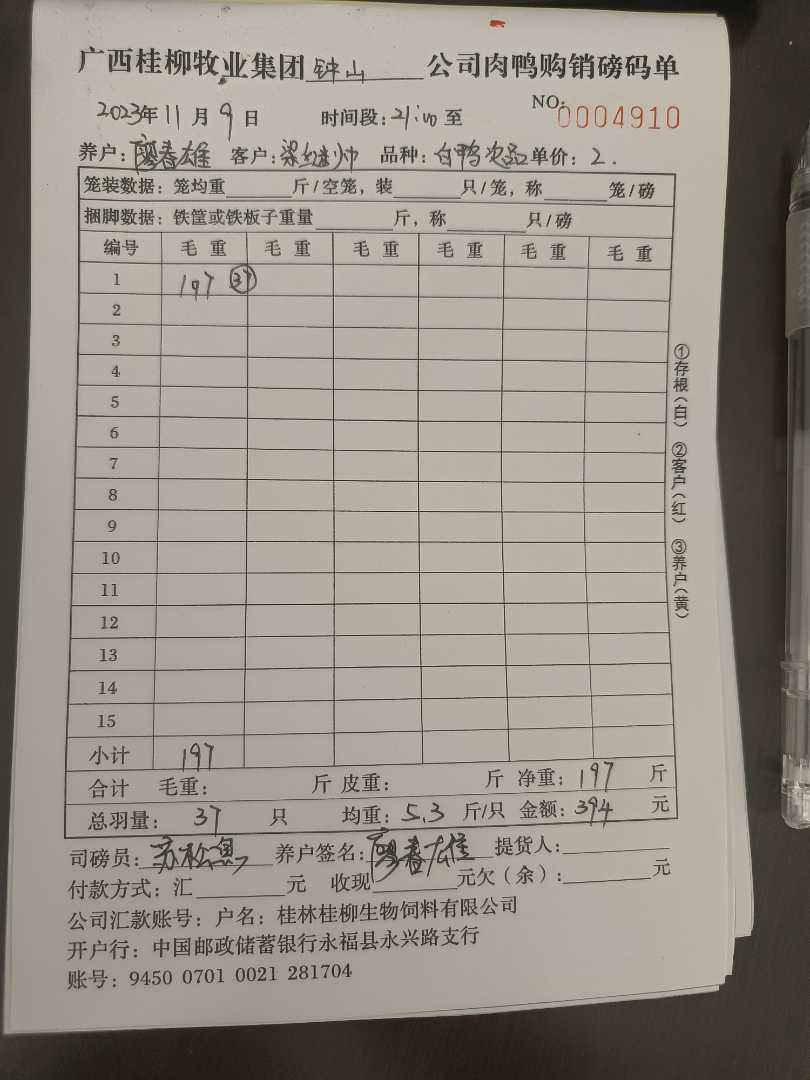 广西桂柳牧业集团钟山公司肉鸭购销磅码单
NO:0004910
2023年11月9日 时间段:21:00至
养户:廖春雄 客户:梁继帅 品种:白鸭次品 单价:2.
笼装数据:笼均重 斤/空笼,装 只/笼,称 笼/磅
捆脚数据:铁筐或铁板子重量 斤,称 只/磅
编号 毛重 毛重 毛重 毛重 毛重 毛重
1 197 37
2
3
4
5
6
7
8
9
10
11
12
13
14
15
小计 197
合计 毛重: 斤 皮重: 斤 净重:197 斤
总羽量:37 只 均重:5.3 斤/只 金额:394 元
司磅员:苏松 养户签名:廖春雄 提货人:
付款方式:汇 元 收现 元欠(余): 元
公司汇款账号:户名:桂林桂柳生物饲料有限公司
开户行:中国邮政储蓄银行永福县永兴路支行
账号:9450 0701 0021 281704
①存根(白) ②客户(红) ③养户(黄)